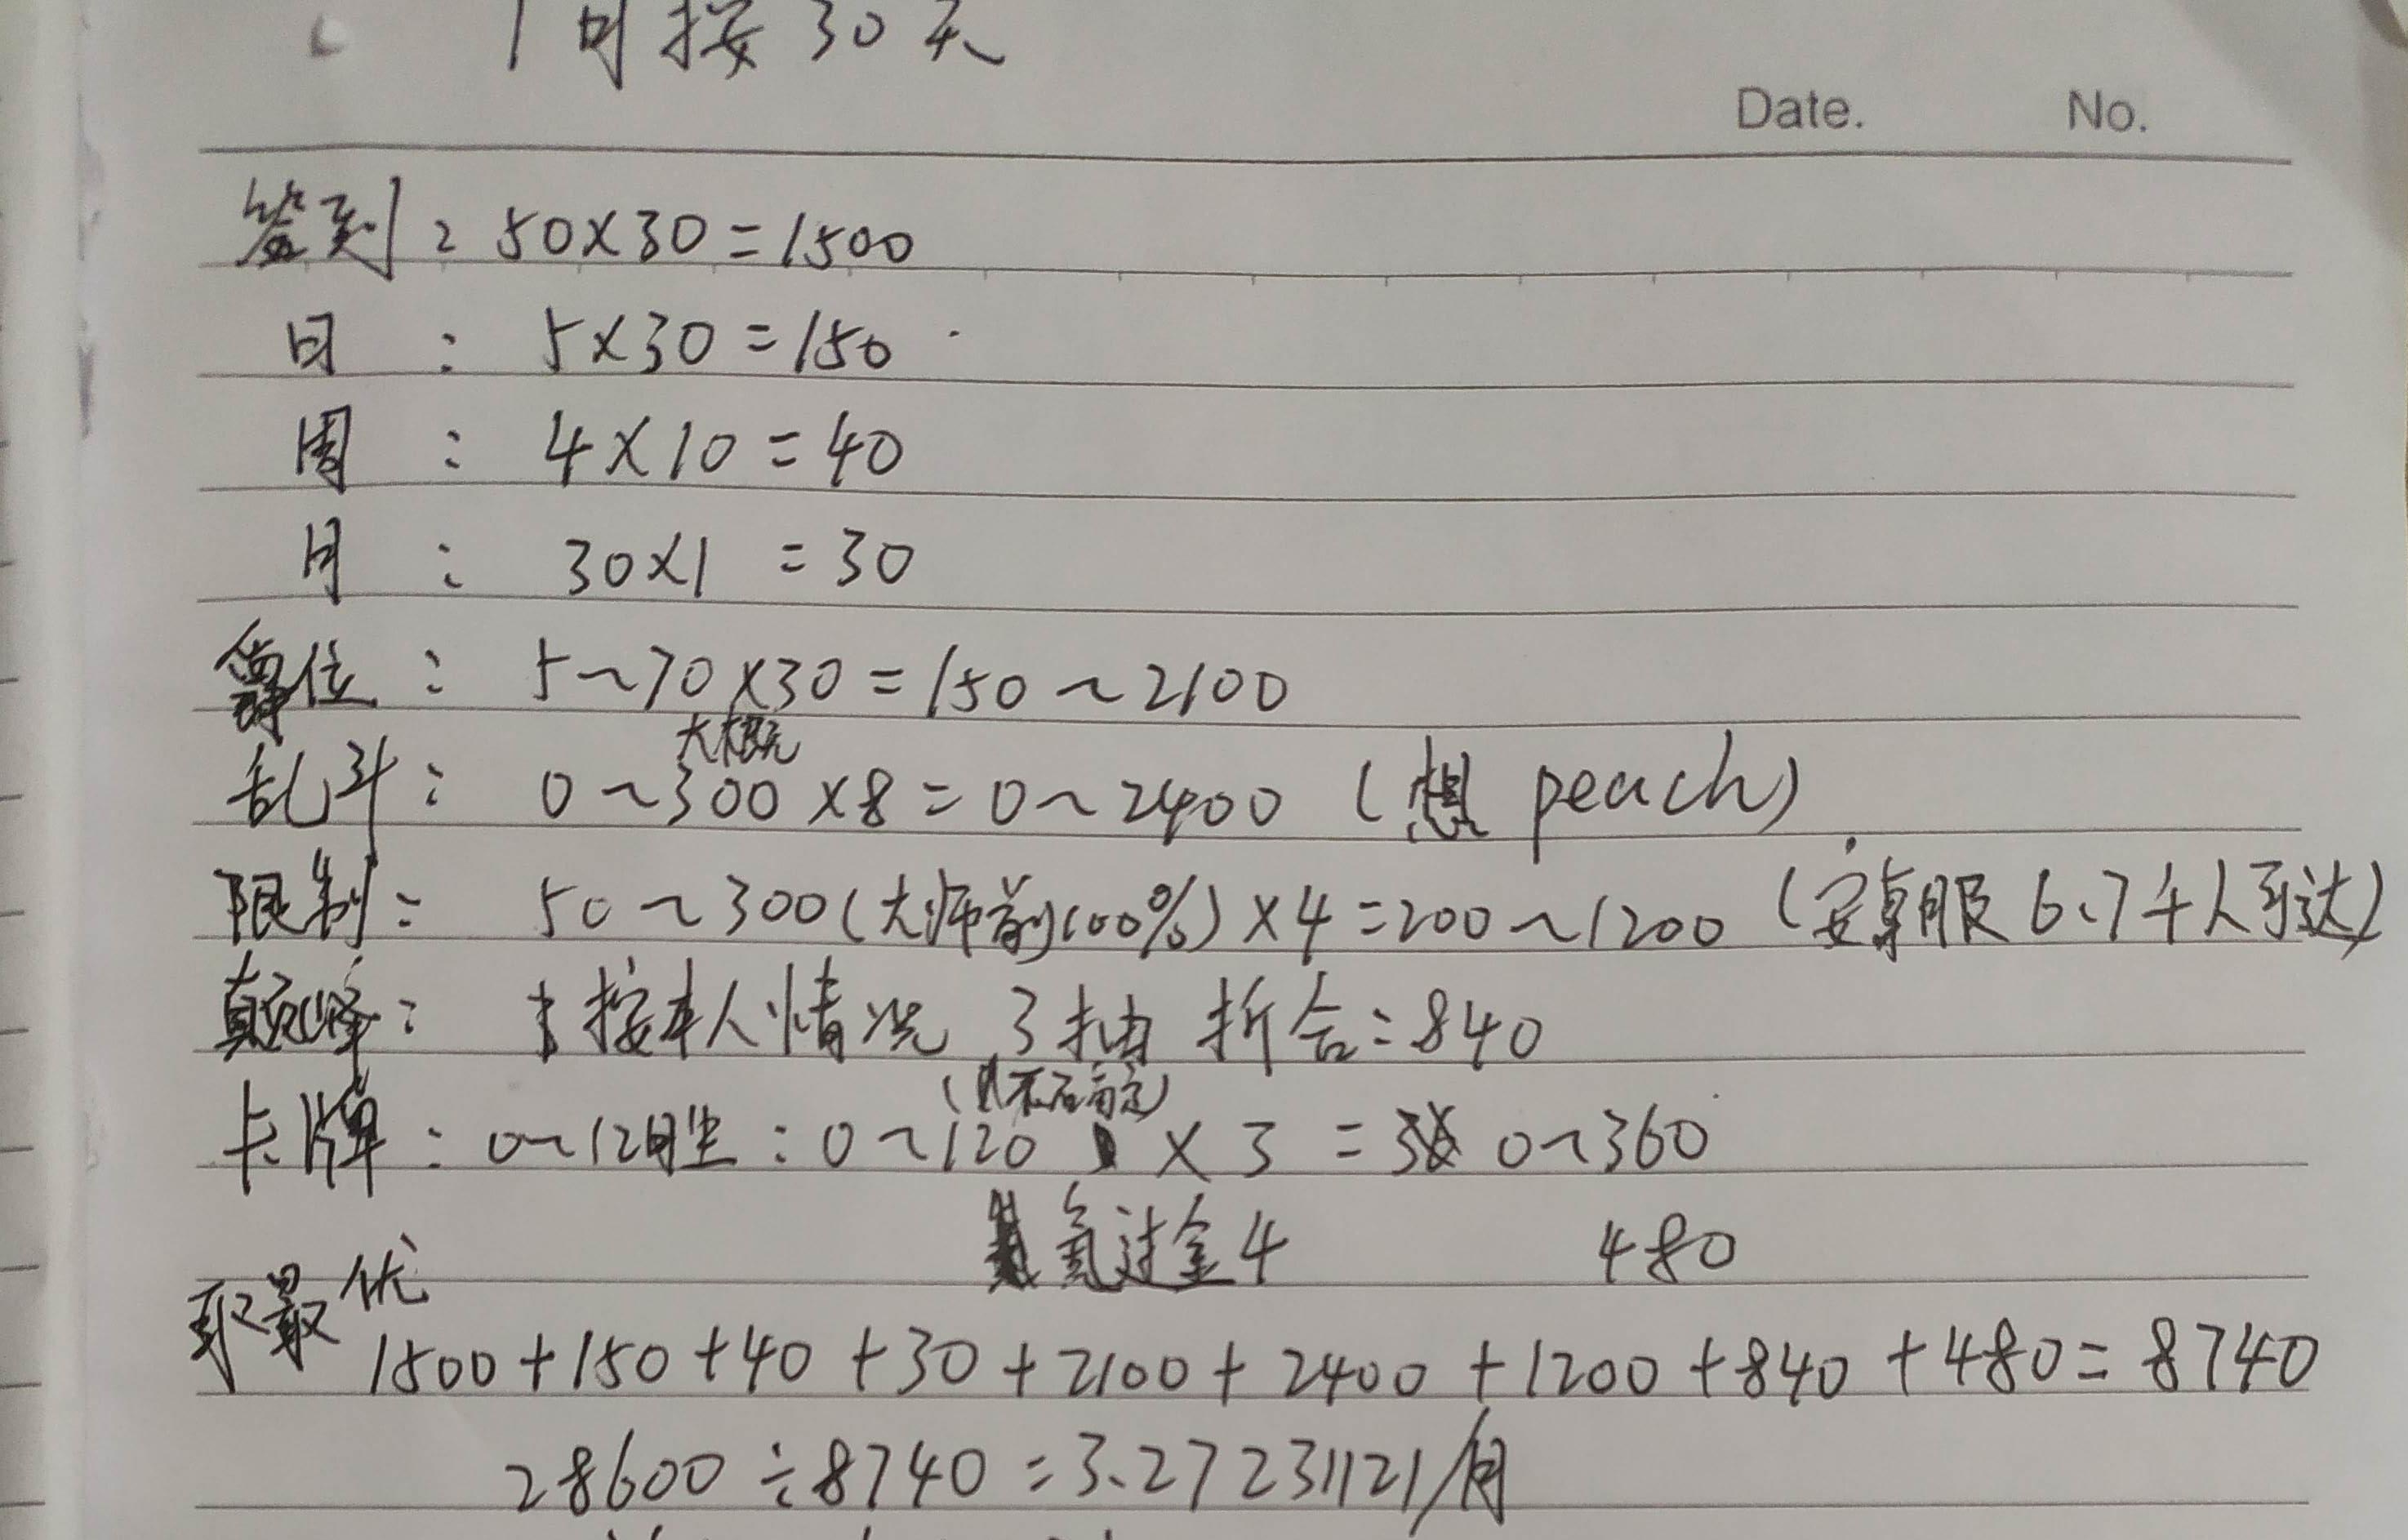 1月按30天
Date. No.
签到：50×30=1500
日：5×30=150
周：4×10=40
月：30×1=30
爵位：5~70×30=150~2100
大概
乱斗：0~300×8=0~2400（想peach）
限制：50~300(大师前100%)×4=200~1200（安卓服6、7千人到达）
颠峰：按本人情况 3抽 折合=840
卡牌：0~12胜：0~120×3=0~360
氪过金4 480
取最优
1500+150+40+30+2100+2400+1200+840+480=8740
28600÷8740=3.27231121/月